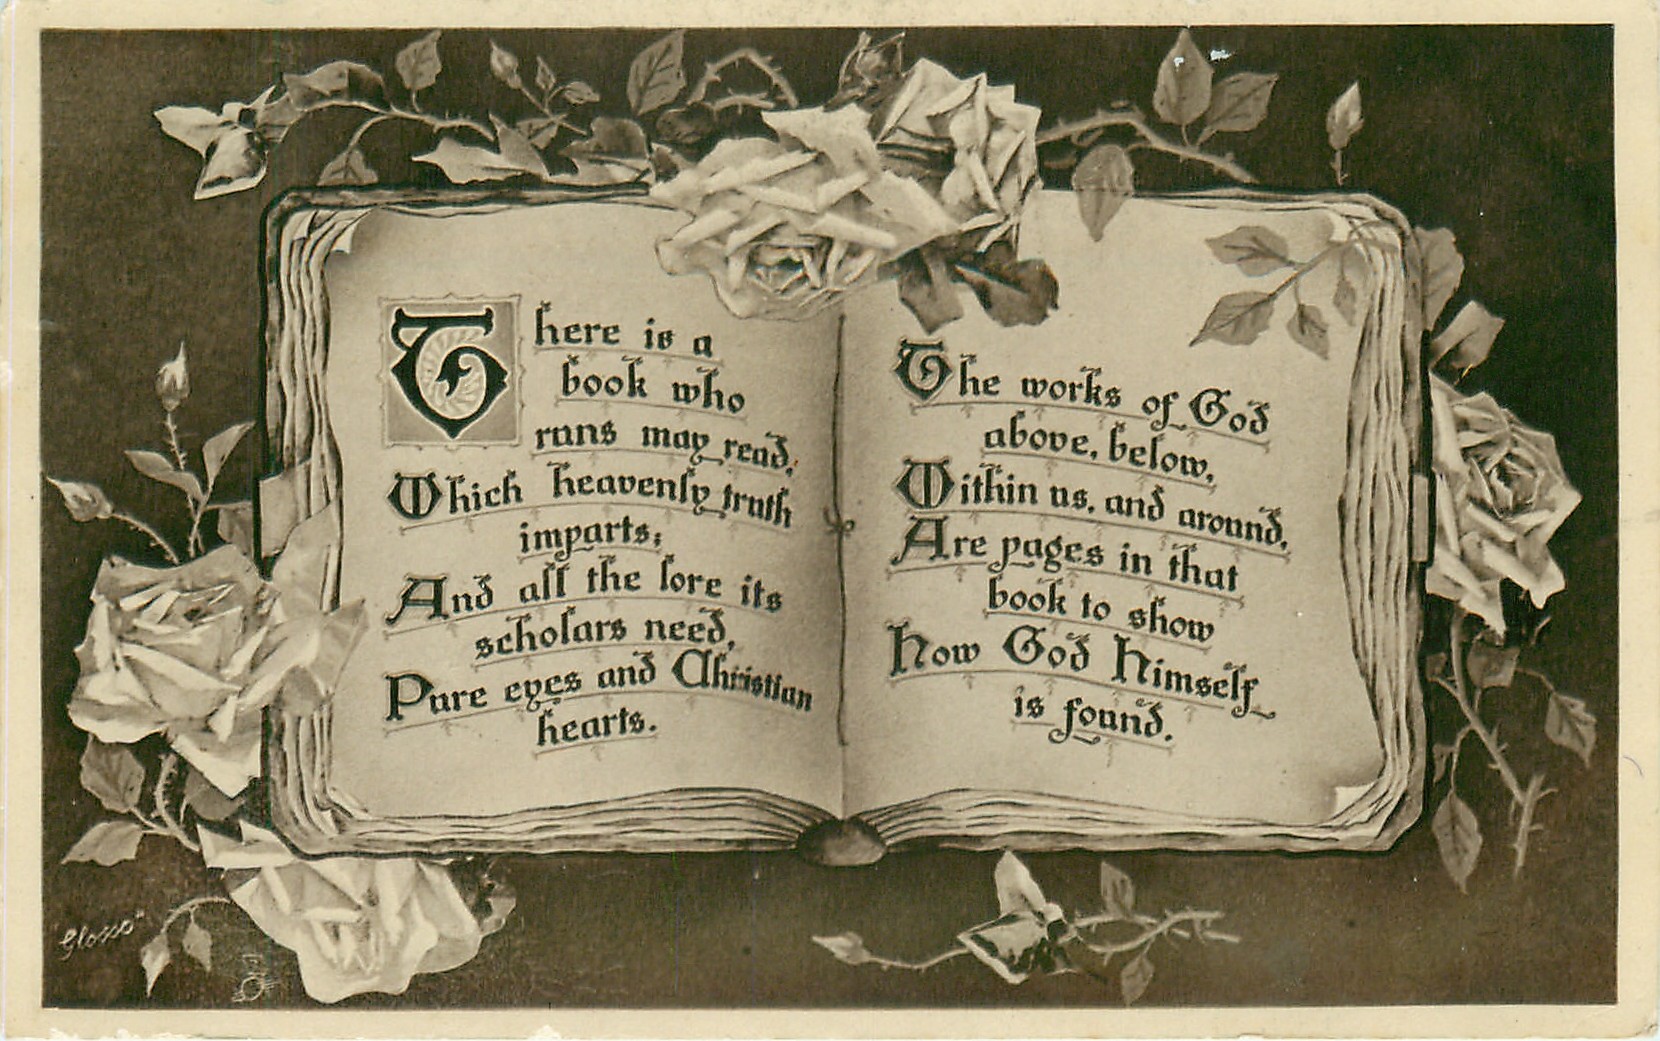 There is a
book who
runs may read,
Which heavenly truth
imparts;
And all the lore its
scholars need,
Pure eyes and Christian
hearts.
The works of God
above, below,
Within us, and around,
Are pages in that
book to show
How God Himself
is found.
"Glosso"